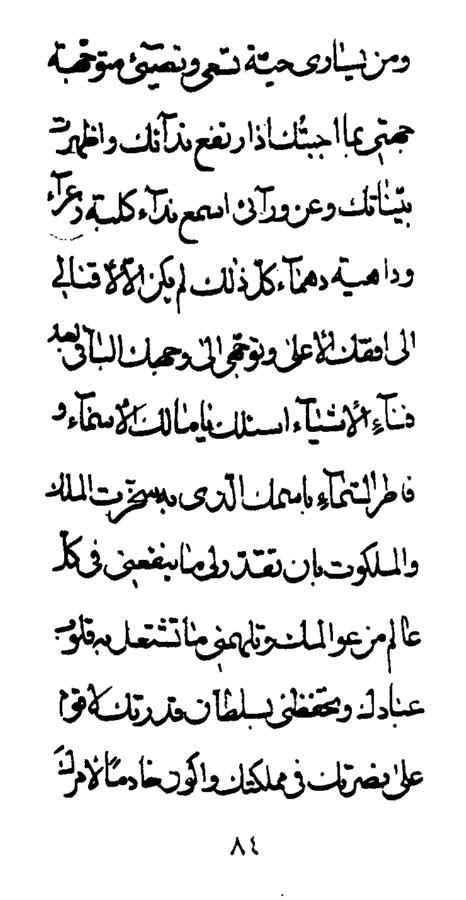 ومن يساری حيّة تسعی وتصيّئ متوجّهة
جهتی بما اجبتُك اذا رتفع ندآئك واظهرت
بيّناتك وعن ورآئی اسمع ندآء كلبة ذعرآء
وداهية دهمآء كلّ ذلك لم يكن الّا لاقبالی
الی افقك الاعلی وتوجّهی الی وجهك الباقی بعد
فنآءِ الاشيآء اسئلك يا مالك الاسمآء و
فاطر السّمآءِ باسمك الّذی به سخّرت الملك
والملكوت بان تقدّر لی ما ينفعنی فی كلّ
عالم من عوالمك وتلهمنی ما تشتعل به قلوب
عبادك وتحفظنی بسلطان قدرتك لاقوم
علی نصرتك فی مملكتك واكون خادمًا لامركَ
٨٤